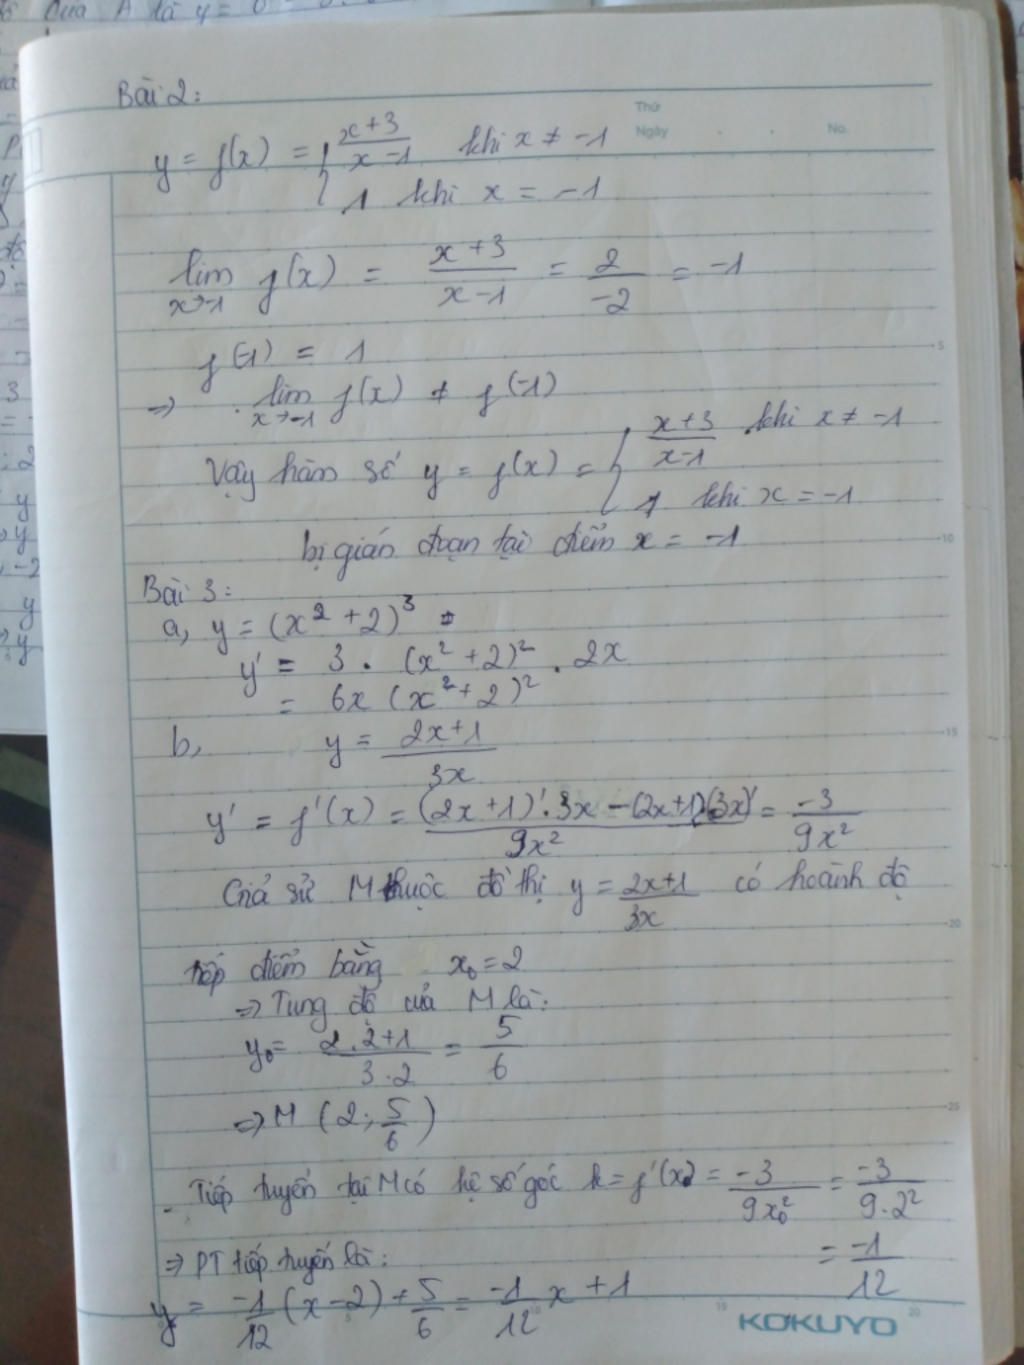 Bài 2:
Thứ
Ngày
No.
y = f(x) = { x+3 / x-1 khi x ≠ -1
1 khi x = -1
lim x→-1 f(x) = x+3 / x-1 = 2 / -2 = -1
f(-1) = 1
=> lim x→-1 f(x) ≠ f(-1)
Vậy hàm số y = f(x) = { x+3 / x-1 khi x ≠ -1
1 khi x = -1
bị gián đoạn tại điểm x = -1
Bài 3:
a, y = (x² + 2)³ =
y' = 3 . (x² + 2)² . 2x
= 6x (x² + 2)²
b, y = 2x+1 / 3x
y' = f'(x) = (2x+1)'.3x - (2x+1).(3x)' / 9x² = -3 / 9x²
Giả sử M thuộc đồ thị y = 2x+1 / 3x có hoành độ
tiếp điểm bằng x₀ = 2
=> Tung độ của M là:
y₀ = 2.2+1 / 3.2 = 5 / 6
=> M (2; 5/6)
Tiếp tuyến tại M có hệ số góc k = f'(x₀) = -3 / 9x₀² = -3 / 9.2²
= -1 / 12
=> PT tiếp tuyến là:
y = -1/12 (x - 2) + 5/6 = -1/12 x + 1
5
10
15
20
25
5
10
15
20
KOKUYO